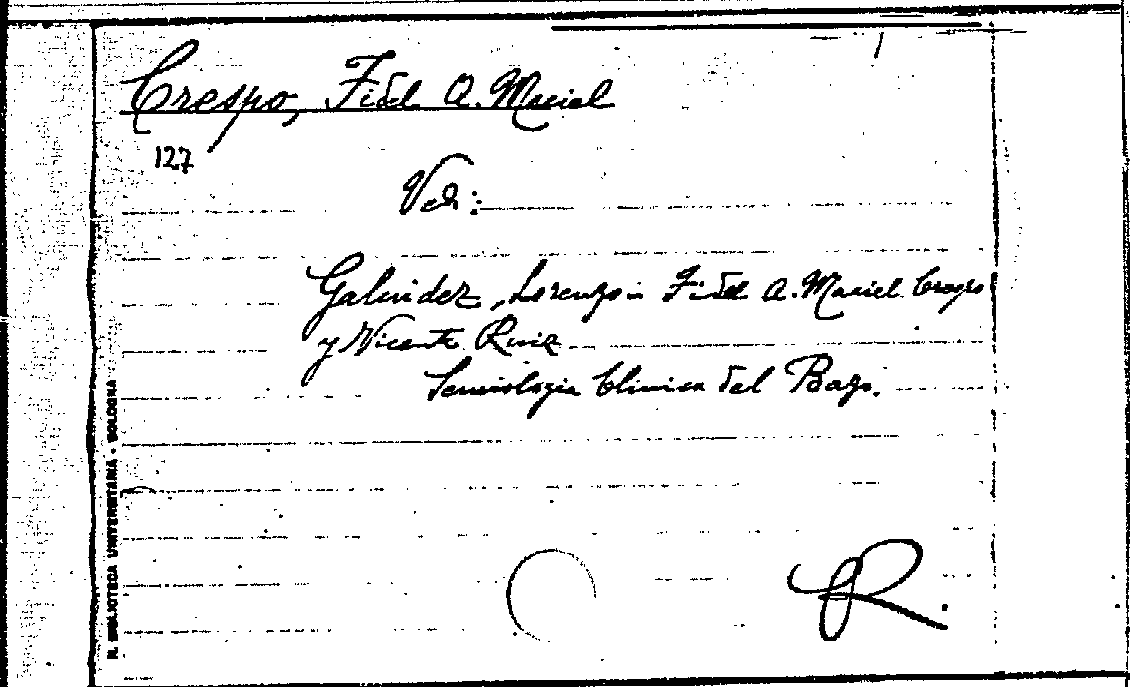 Crespo, Fidel A. Maciel
127
Vedi:
Galindez, Lorenzo; Fidel A. Maciel Crespo
y Vicente Ruiz
Semiologia Clinica del Bazo.
R.
R. BIBLIOTECA UNIVERSITARIA - BOLOGNA